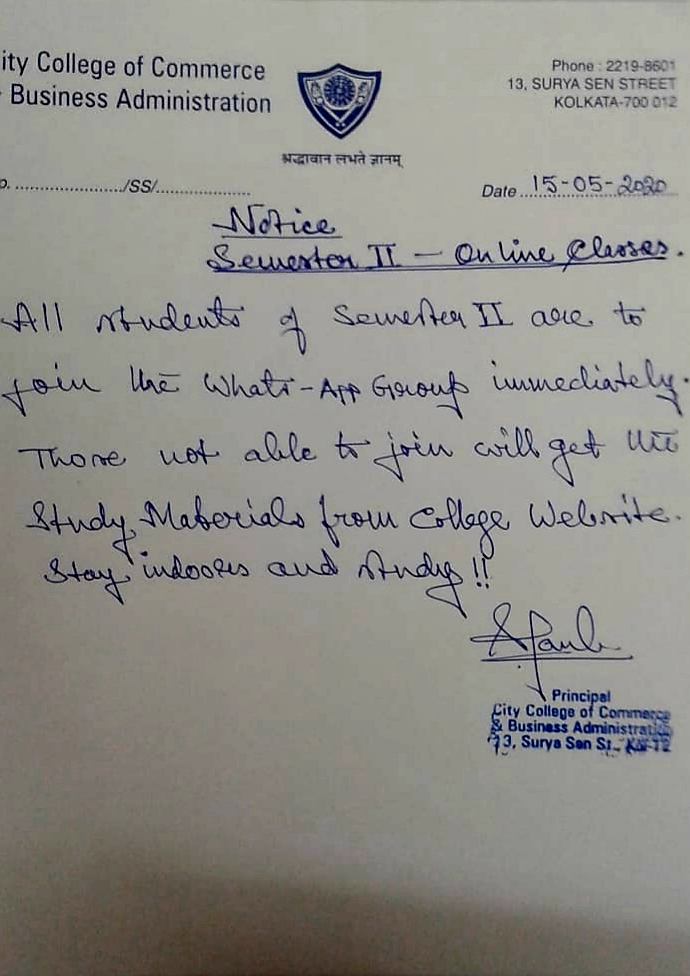 ity College of Commerce
Business Administration
श्रद्धावान लभते ज्ञानम्
Phone : 2219-8601
13, SURYA SEN STREET
KOLKATA-700 012
o. ....................../SS/...................
Date 15-05-2020
Notice
Semester II - Online Classes.
All students of Semester II are to
join the Whats-App Group immediately.
Those not able to join will get the
Study Materials from College Website.
Stay indoors and study!!
Principal
City College of Commerce
& Business Administration
13, Surya Sen St., Kol-12